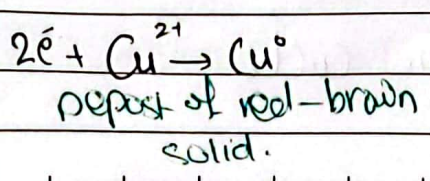 2é + Cu²⁺ → Cu°
Depost of red-brawn
solid.